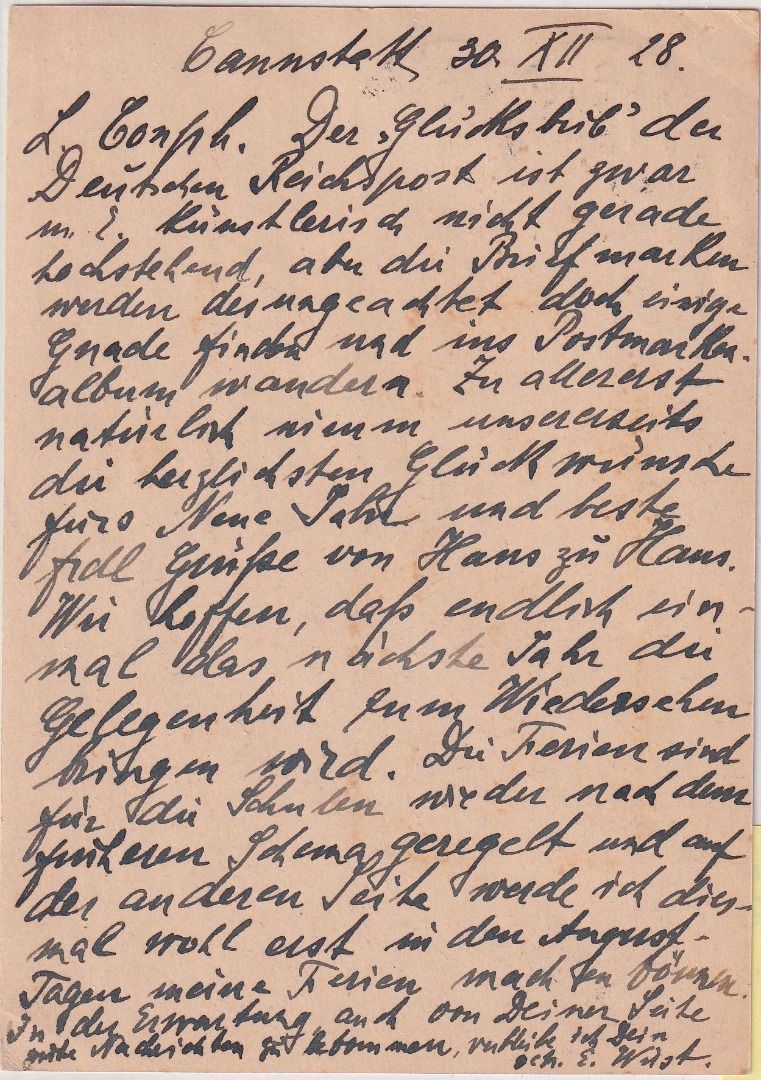 Cannstatt, 30. XII 28.
L. Conph. Der "Glücksbub" der
Deutschen Reichspost ist zwar
m. E. künstlerisch nicht gerade
hochstehend, aber die Briefmarken
werden desungeachtet doch einige
Gnade finden und ins Postmarken-
album wandern. Zu allererst
natürlich nimm unsererseits
die herzlichsten Glückwünsche
fürs Neue Jahr und beste
frdl Grüße von Haus zu Haus.
Wir hoffen, daß endlich ein-
mal das nächste Jahr die
Gelegenheit zum Wiedersehen
bringen wird. Die Ferien sind
für die Schulen wieder nach dem
früheren Schema geregelt und auf
der anderen Seite werde ich dies-
mal wohl erst in den August-
Tagen meine Ferien machen können.
In der Erwartung, auch von Deiner Seite
gute Nachrichten zu bekommen, verbleibe ich Dein
E. Wüst.